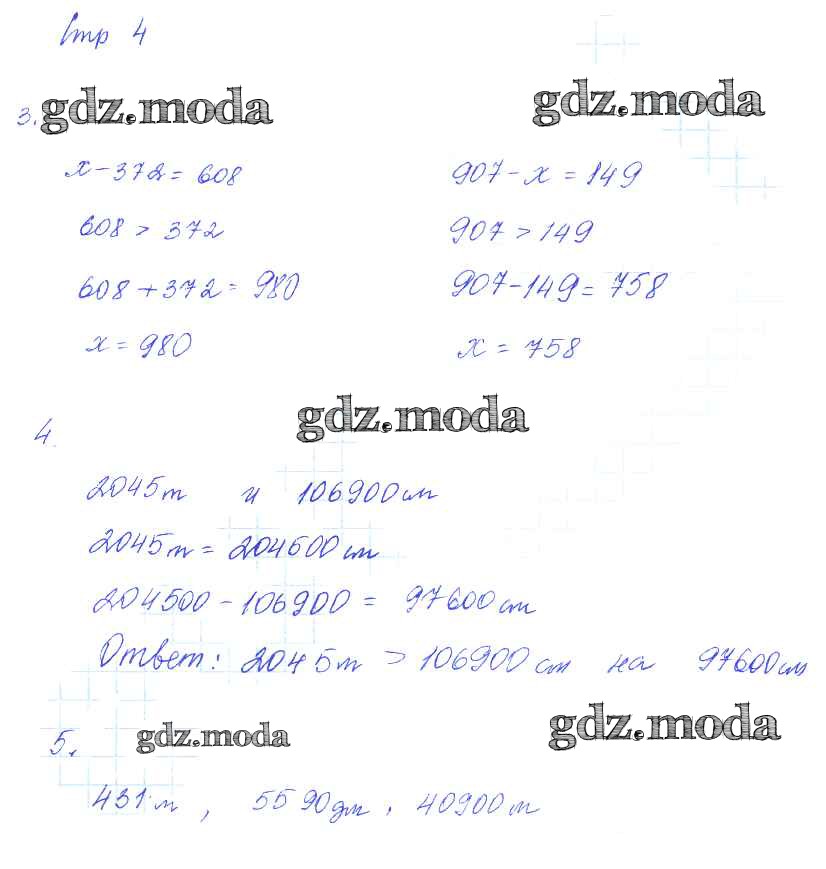 Стр 4
gdz.moda gdz.moda
3.
x - 372 = 608
608 > 372
608 + 372 = 980
x = 980
907 - x = 149
907 > 149
907 - 149 = 758
x = 758
gdz.moda
4.
2045m и 106900 см
2045m = 204500 см
204500 - 106900 = 97600 см
Ответ: 2045m > 106900 см на 97600 см
5. gdz.moda gdz.moda
431 м, 5590 дм, 40900 м